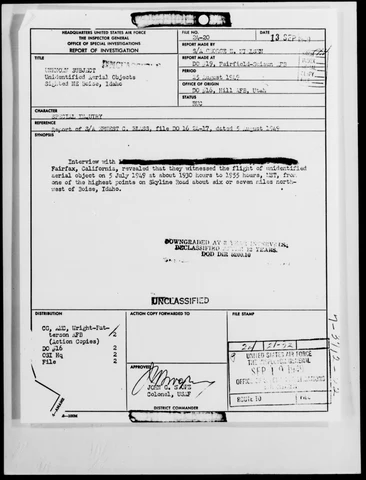 HEADQUARTERS UNITED STATES AIR FORCE
THE INSPECTOR GENERAL
OFFICE OF SPECIAL INVESTIGATIONS
REPORT OF INVESTIGATION
FILE NO.
24-20
DATE
13 SEP
TITLE
UNKNOWN SUBJECT
Unidentified Aerial Objects
Sighted NE Boise, Idaho
REPORT MADE BY
S/A
REPORT MADE AT
DO #19, Fairfield-Suisun AFB
PERIOD
25 August 1949
OFFICE OF ORIGIN
DO #16, Hill AFB, Utah
STATUS
RUC
CHARACTER
SPECIAL INQUIRY
REFERENCE
Report of S/A ERNEST C. file DO 16 24-17, dated 5 August 1949
SYNOPSIS
Interview with
Fairfax, California, revealed that they witnessed the flight of unidentified
aerial object on 5 July 1949 at about 1930 hours to 1935 hours, MST, from
one of the highest points on Skyline Road about six or seven miles north-
west of Boise, Idaho.
DOWNGRADED AT 3 YEAR INTERVALS;
DECLASSIFIED AFTER 12 YEARS.
DOD DIR 5200.10
UNCLASSIFIED
DISTRIBUTION
CG, AMC, Wright-Pat-
terson AFB 2
(Action Copies)
DO #16 2
OSI Hq 2
File 2
ACTION COPY FORWARDED TO
FILE STAMP
UNITED STATES AIR FORCE
THE INSPECTOR GENERAL
SEP 19
ROUTE TO
FILE
APPROVED
Colonel, USAF
DISTRICT COMMANDER